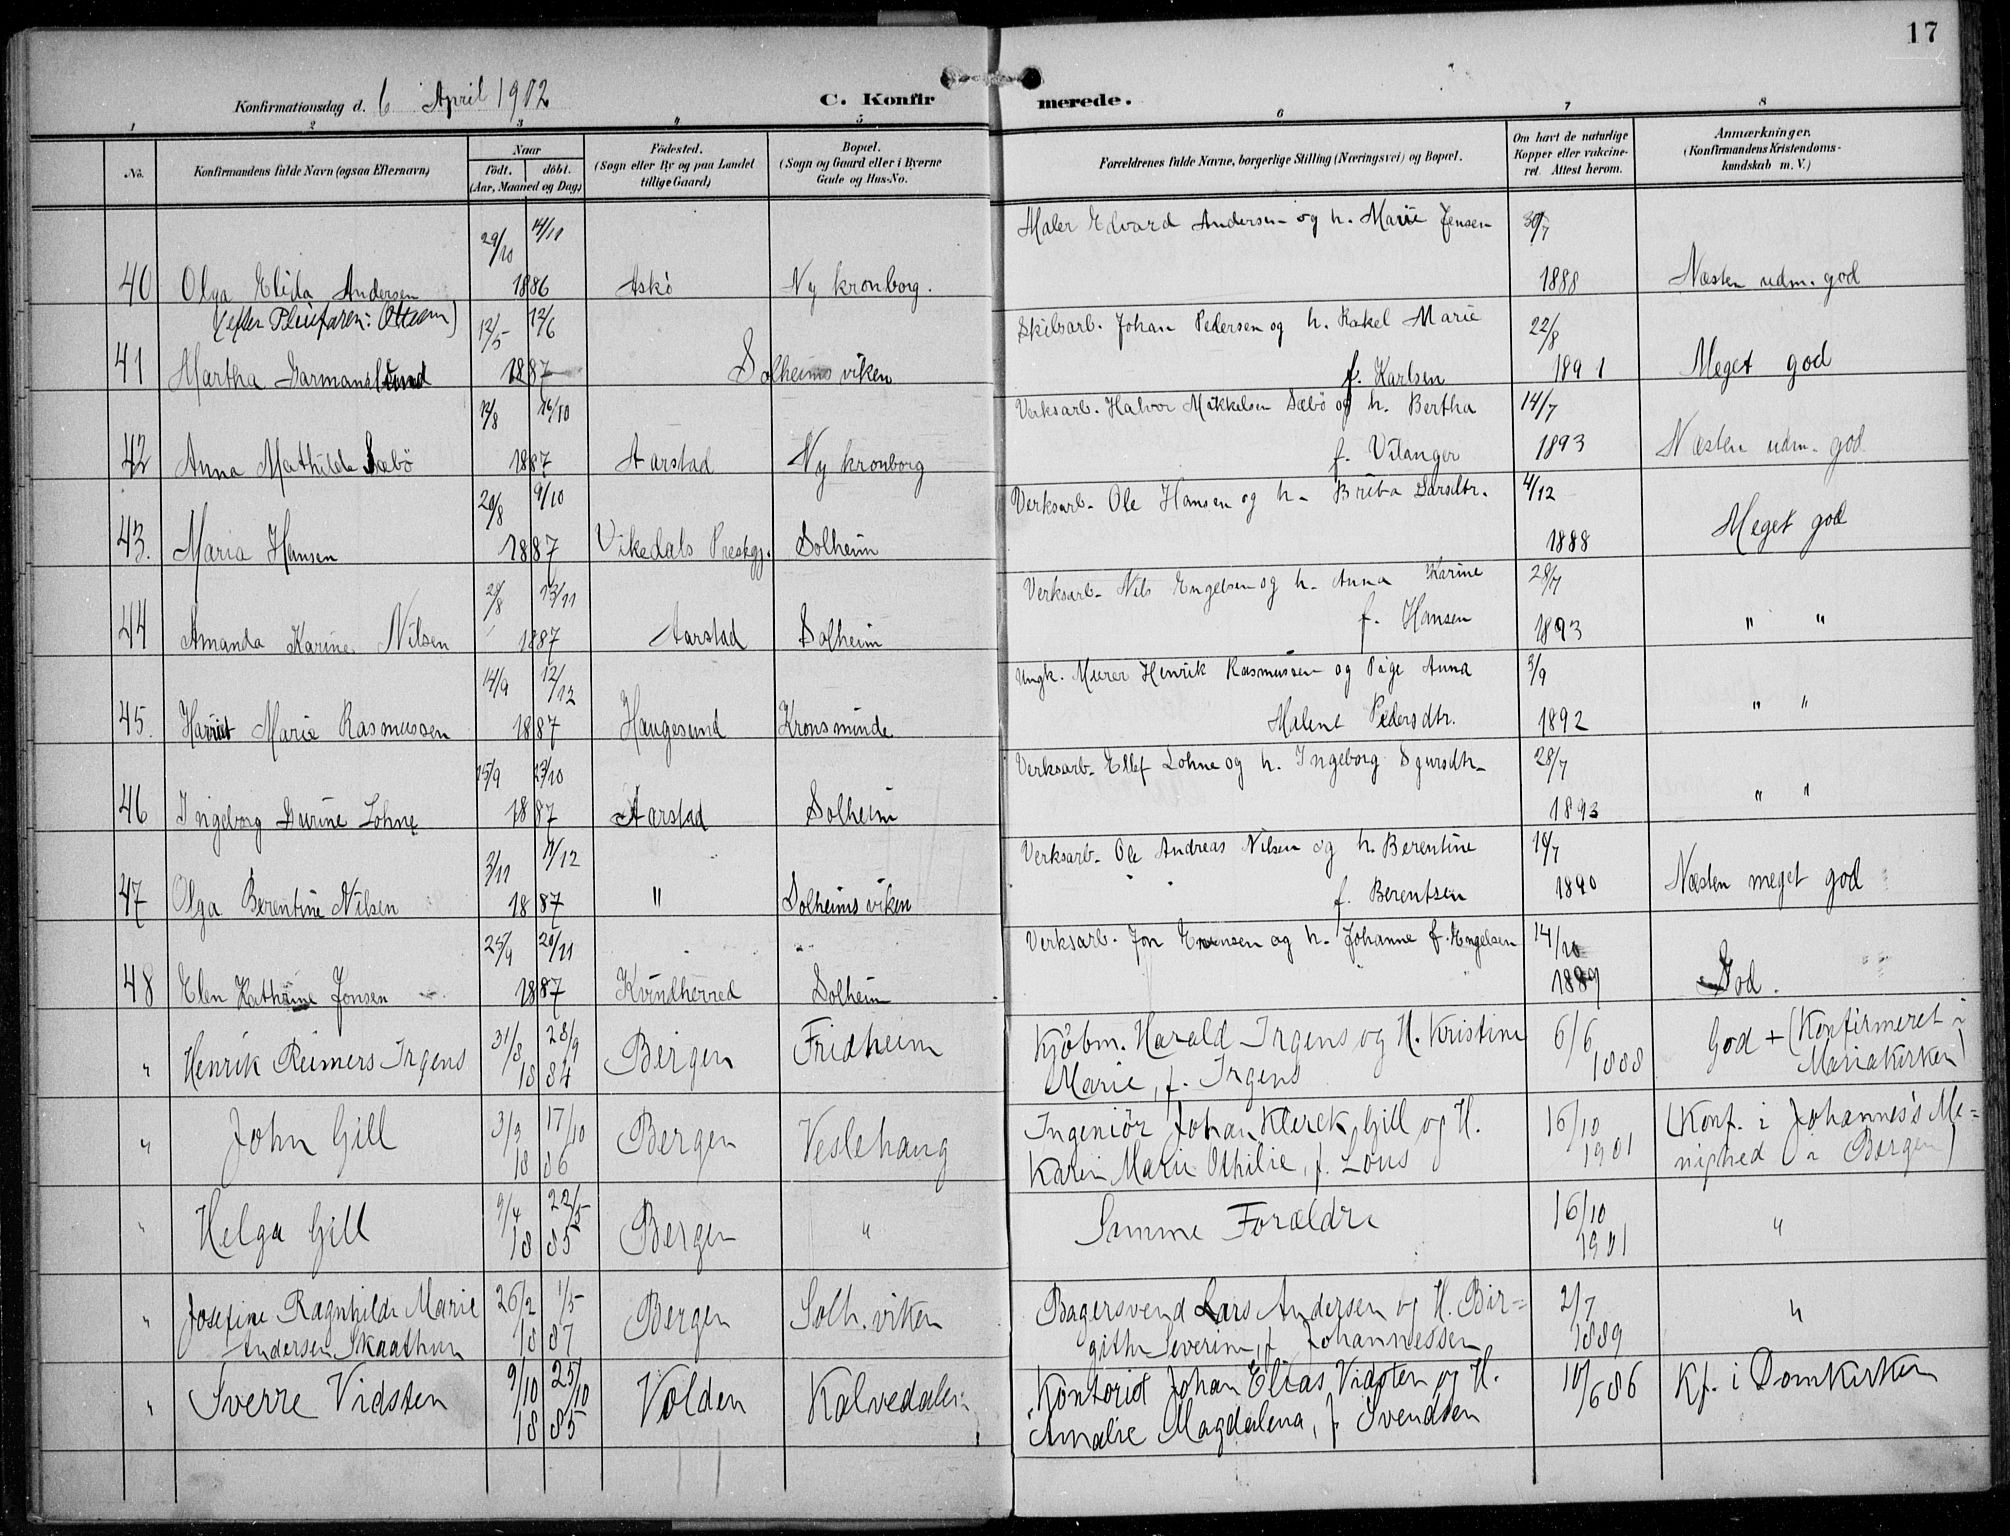 17
Konfirmationsdag d. 6 April 1902 C. Konfirmerede.
1 2 3 4 5 6 7 8
No. Konfirmandens fulde Navn (ogsaa Efternavn) Naar født. døbt. (Aar, Maaned og Dag) Fødested. (Sogn eller By og paa Landet tillige Gaard) Bopæl. (Sogn og Gaard eller i Byerne Gade og Hus-No. Forældrenes fulde Navne, borgerlige Stilling (Næringsvei) og Bopæl. Om havt de naturlige Kopper eller vakcineret. Attest herom. Anmærkninger. (Konfirmandens Kristendomskundskab m. V.)
29/10 14/11 Maler Edvard Andersen og h. Marie Jensen 30/7
40 Olga Elida Andersen 1886 Askø Ny kronborg. 1888 Næsten udm. god
(efter Pleiefaren: Ottesen)
12/5 12/6 Johan Pedersen og h. Rakel Marie 22/8
41 Martha 1887 Solheimsviken f. Karlsen 1891 Meget god
12/8 16/10 Verksarb. Halvor Mikkelsen Sæbø og h. Bertha 14/7
42 Anna Mathilde Sæbø 1887 Aarstad Ny kronborg f. Vitanger 1893 Næsten udm. god
20/8 9/10 Verksarb. Ole Hansen og h. Brita Larsdtr. 4/12
43. Maria Hansen 1887 Vikedals Prestgj. Solheim 1888 Meget god
21/8 13/11 Verksarb. Nils Engelsen og h. Anna Karine 28/7
44 Amanda Karine Nilsen 1887 Aarstad Solheim f. Hansen 1893 " "
14/9 12/12 Ungk. Murer Henrik Rasmussen og Pige Anna 3/9
45. Harriet Marie Rasmussen 1887 Haugesund Kronsminde Malene Pedersdtr. 1892 " "
15/9 23/10 Verksarb. Ellef Lohne og h. Ingeborg 28/7
46 Ingeborg Lohne 1887 Aarstad Solheim 1893 " "
3/11 11/12 Verksarb. Ole Andreas Nilsen og h. Berentine 10/7
47 Olga Berentine Nilsen 1887 " Solheimsviken f. Berentsen 1890 Næsten meget god
25/9 20/11 Verksarb. Jon og h. Johanne f. Engelsen 14/10
48 Elen Kathrine Jonsen 1887 Kvindherred Solheim 1889 God.
31/8 28/9 Kjøbm. Harald Irgens og H. Kristine 6/6 God + (Konfirmeret i
" Henrik Reimers Irgens 1884 Bergen Fridheim Marie, f. Irgens 1888 Mariakirken)
3/9 17/10 Ingeniør Johan Klerck Gill og H. 16/10 (Konf. i Johannes's Me-
" John Gill 1886 Bergen Veslehaug Karen Marie Othilie, f. Lous 1901 nighed i Bergen)
9/4 22/5 16/10
" Helga Gill 1885 Bergen " Samme Forældre 1901 "
Josefine Ragnhilde Marie 26/2 1/5 Bagersvend Lars Andersen og H. Bir- 2/7
" Andersen Skaathun 1887 Bergen Solh.viken githe Severine, f. Johannessen 1889 "
9/10 25/10 Kontorist Johan Elias Vidsten og H. 10/6 86 Kf. i Domkirken
" Sverre Vidsten 1885 Volden Kalvedalen Amalie Magdalena, f. Svendsen